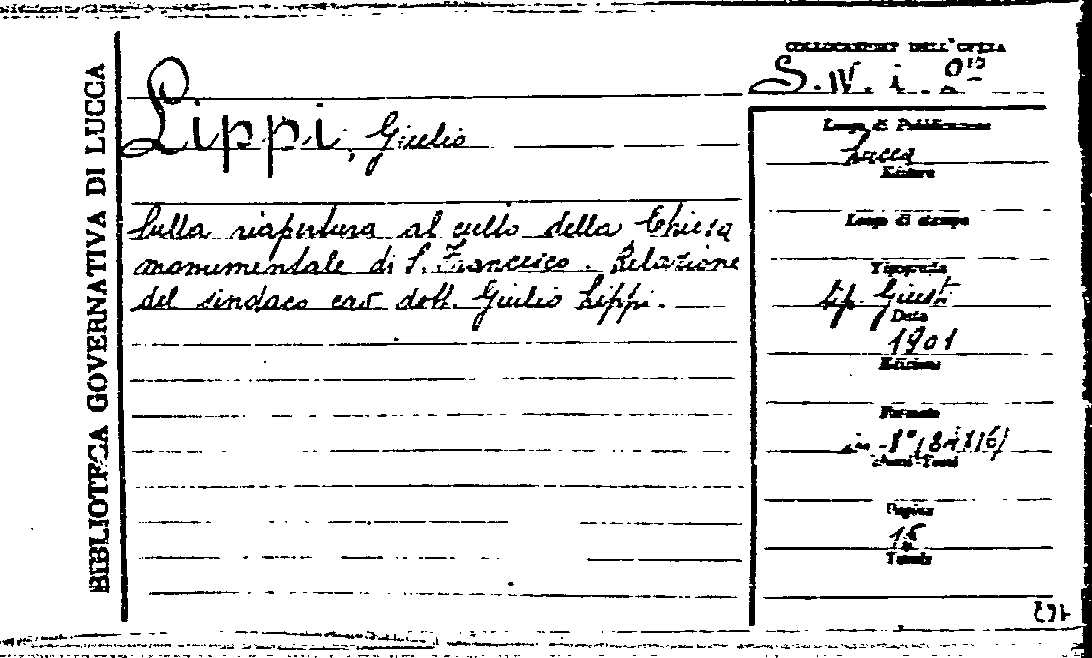 BIBLIOTECA GOVERNATIVA DI LUCCA
COLLOCAZIONE DELL'OPERA
S. W. i.
Lippi, Giulio
Sulla riapertura al culto della Chiesa
monumentale di S. Francesco. Relazione
del sindaco cav dott. Giulio Lippi.
Luogo di Pubblicazione
Lucca
Editore
Luogo di stampa
Tipografia
tip. Giusti
Data
1901
Edizione
Formato
in-8°
Pagine
Tavole